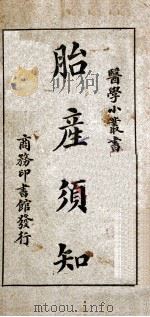 醫學小叢書
胎產須知
商務印書館發行
www.mtoou.info